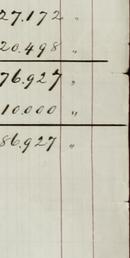 27.172 "
20.498 "
76.927 "
10.000 "
86.927 "